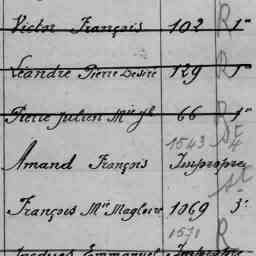 Victor François 102 R 1er
Léandre Pierre Désiré 129 R 1er
Pierre Julien Mie 66 R 1er
1543 4
Amand François Impropre
François Mie Magloire 1069 3e
1570 R
Jacques Emmanuel Impropre